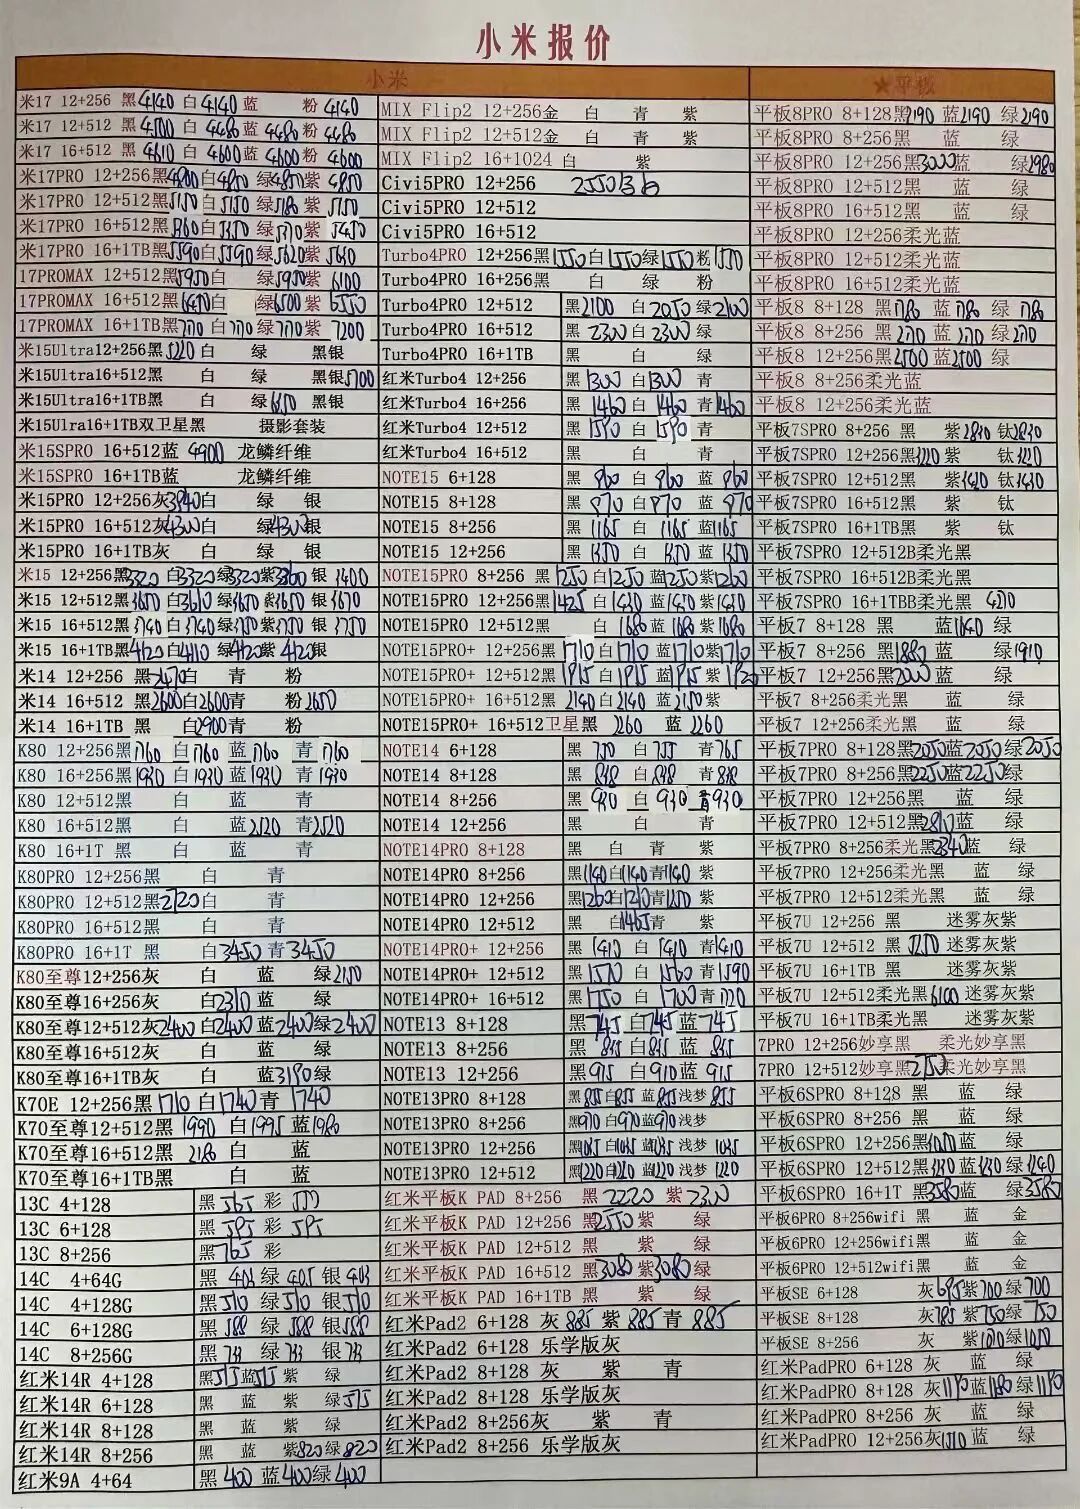 小米报价
小米
米17 12+256 黑4140 白4140 蓝 粉4140
米17 12+512 黑4500 白4480 蓝4480 粉4480
米17 16+512 黑4610 白4600 蓝4600 粉4600
米17PRO 12+256黑4800 白4850 绿4850 紫4850
米17PRO 12+512黑5150 白5150 绿5180 紫5150
米17PRO 16+512黑5360 白5350 绿5370 紫5450
米17PRO 16+1TB黑5590 白5590 绿5620 紫5650
17PROMAX 12+512黑5950 白 绿5950 紫6100
17PROMAX 16+512黑6450 白 绿6500 紫6550
17PROMAX 16+1TB黑7110 白7110 绿7110 紫7200
米15Ultra12+256黑5220 白 绿 黑银
米15Ultra16+512黑 白 绿 黑银5700
米15Ultra16+1TB黑 白 绿6150 黑银
米15Ulra16+1TB双卫星黑 摄影套装
米15SPRO 16+512蓝 4900 龙鳞纤维
米15SPRO 16+1TB蓝 龙鳞纤维
米15PRO 12+256灰3940 白 绿 银
米15PRO 16+512灰4300 白 绿4300 银
米15PRO 16+1TB灰 白 绿 银
米15 12+256黑3320 白3320 绿3320 紫3360 银 3400
米15 12+512黑3650 白3610 绿3650 紫3650 银 3670
米15 16+512黑3740 白3740 绿3750 紫3750 银 3750
米15 16+1TB黑4120 白4110 绿4120 紫4120 银
米14 12+256 黑2470 白 青 粉
米14 16+512 黑2600 白2600 青 粉2650
米14 16+1TB 黑 白2900 青 粉
K80 12+256黑1760 白1760 蓝1760 青1760
K80 16+256黑1930 白1930 蓝1930 青1930
K80 12+512黑 白 蓝 青
K80 16+512黑 白 蓝2520 青2520
K80 16+1T 黑 白 蓝 青
K80PRO 12+256黑 白 青
K80PRO 12+512黑2720 白 青
K80PRO 16+512黑 白 青
K80PRO 16+1T 黑 白3450 青3450
K80至尊12+256灰 白 蓝 绿2150
K80至尊16+256灰 白2310 蓝 绿
K80至尊12+512灰2400 白2400 蓝2400 绿2400
K80至尊16+512灰 白 蓝 绿
K80至尊16+1TB灰 白 蓝3190 绿
K70E 12+256黑1710 白1740 青 1740
K70至尊12+512黑 1990 白1995 蓝1980
K70至尊16+512黑 2180 白 蓝
K70至尊16+1TB黑 白 蓝
13C 4+128 黑565 彩
13C 6+128 黑595 彩 595
13C 8+256 黑765 彩
14C 4+64G 黑 403 绿405 银403
14C 4+128G 黑510 绿510 银510
14C 6+128G 黑588 绿 588 银588
14C 8+256G 黑 733 绿 733 银 733
红米14R 4+128 黑515 蓝515 紫 绿
红米14R 6+128 黑 蓝 紫 绿515
红米14R 8+128 黑 蓝 紫 绿
红米14R 8+256 黑 蓝 紫820 绿820
红米9A 4+64 黑 400 蓝400 绿400
MIX Flip2 12+256金 白 青 紫
MIX Flip2 12+512金 白 青 紫
MIX Flip2 16+1024 白 紫
Civi5PRO 12+256 2550
Civi5PRO 12+512
Civi5PRO 16+512
Turbo4PRO 12+256黑1550 白1550 绿1550 粉1550
Turbo4PRO 16+256黑 白 绿 粉
Turbo4PRO 12+512 黑2100 白2050 绿2100
Turbo4PRO 16+512 黑 2300 白2300 绿
Turbo4PRO 16+1TB 黑 白 绿
红米Turbo4 12+256 黑1300 白1300 青
红米Turbo4 16+256 黑1460 白1460 青1460
红米Turbo4 12+512 黑1590 白1590 青
红米Turbo4 16+512 黑 白 青
NOTE15 6+128 黑 860 白 860 蓝 860
NOTE15 8+128 黑 970 白970 蓝 970
NOTE15 8+256 黑1165 白 1165 蓝1165
NOTE15 12+256 黑1350 白1350 蓝1350
NOTE15PRO 8+256 黑1250 白1250 蓝1250 紫1260
NOTE15PRO 12+256黑1425 白1430 蓝1430 紫1430
NOTE15PRO 12+512黑 白1680 蓝1680 紫1680
NOTE15PRO+ 12+256黑1710 白1710 蓝1710 紫1710
NOTE15PRO+ 12+512黑1915 白1915 蓝1915 紫1920
NOTE15PRO+ 16+512黑2140 白2140 蓝2150 紫
NOTE15PRO+ 16+512卫星黑 2260 蓝 2260
NOTE14 6+128 黑 750 白 755 青765
NOTE14 8+128 黑 838 白838 青838
NOTE14 8+256 黑 930 白 930 青930
NOTE14 12+256 黑 白 青
NOTE14PRO 8+128 黑 白 青 紫
NOTE14PRO 8+256 黑1140 白1140 青1140 紫
NOTE14PRO 12+256 黑1260 白1210 青1250 紫
NOTE14PRO 12+512 黑 白1465 青 紫
NOTE14PRO+ 12+256 黑1410 白1410 青1410
NOTE14PRO+ 12+512 黑1570 白1560 青1590
NOTE14PRO+ 16+512 黑1750 白 1700 青1720
NOTE13 8+128 黑745 白745 蓝745
NOTE13 8+256 黑 845 白845 蓝 845
NOTE13 12+256 黑915 白910 蓝 915
NOTE13PRO 8+128 黑855 白855 蓝855 浅梦
NOTE13PRO 8+256 黑970 白970 蓝970 浅梦
NOTE13PRO 12+256 黑1035 白1035 蓝1035 浅梦 1035
NOTE13PRO 12+512 黑1220 白1220 蓝1220 浅梦 1220
红米平板K PAD 8+256 黑 2220 紫2300
红米平板K PAD 12+256 黑2550 紫 绿
红米平板K PAD 12+512 黑 紫 绿
红米平板K PAD 16+512 黑3080 紫3080 绿
红米平板K PAD 16+1TB 黑 紫 绿
红米Pad2 6+128 灰 885 紫 885 青 885
红米Pad2 6+128 乐学版灰
红米Pad2 8+128 灰 紫 青
红米Pad2 8+128 乐学版灰
红米Pad2 8+256灰 紫 青
红米Pad2 8+256 乐学版灰
★平板
平板8PRO 8+128黑2190 蓝2190 绿2190
平板8PRO 8+256黑 蓝 绿
平板8PRO 12+256黑3000 蓝 绿2980
平板8PRO 12+512黑 蓝 绿
平板8PRO 16+512黑 蓝 绿
平板8PRO 12+256柔光蓝
平板8PRO 12+512柔光蓝
平板8PRO 16+512柔光蓝
平板8 8+128 黑1780 蓝1780 绿1780
平板8 8+256 黑 2170 蓝2170 绿2170
平板8 12+256黑2500 蓝2500 绿
平板8 8+256柔光蓝
平板8 12+256柔光蓝
平板7SPRO 8+256 黑 紫2830 钛2830
平板7SPRO 12+256黑 紫 钛
平板7SPRO 12+512黑 紫 钛
平板7SPRO 16+512黑 紫 钛
平板7SPRO 16+1TB黑 紫 钛
平板7SPRO 12+512B柔光黑
平板7SPRO 16+512B柔光黑
平板7SPRO 16+1TBB柔光黑 4270
平板7 8+128 黑 蓝1640 绿
平板7 8+256 黑1880 蓝 绿1910
平板7 12+256黑2000 蓝 绿
平板7 8+256柔光黑 蓝 绿
平板7 12+256柔光黑 蓝 绿
平板7PRO 8+128黑2050 蓝2050 绿2050
平板7PRO 8+256黑2250 蓝2250 绿
平板7PRO 12+256黑 蓝 绿
平板7PRO 12+512黑2810 蓝 绿
平板7PRO 8+256柔光黑2340 蓝 绿
平板7PRO 12+256柔光黑 蓝 绿
平板7PRO 12+512柔光黑 蓝 绿
平板7U 12+256 黑 迷雾灰紫
平板7U 12+512 黑 5250 迷雾灰紫
平板7U 16+1TB 黑 迷雾灰紫
平板7U 12+512柔光黑6100 迷雾灰紫
平板7U 16+1TB柔光黑 迷雾灰紫
7PRO 12+256妙享黑 柔光妙享黑
7PRO 12+512妙享黑 柔光妙享黑
平板6SPRO 8+128 黑 蓝 绿
平板6SPRO 8+256 黑 蓝 绿
平板6SPRO 12+256黑 蓝 绿
平板6SPRO 12+512黑 蓝 绿
平板6SPRO 16+1T 黑3580 蓝 绿3580
平板6PRO 8+256wifi 黑 蓝 金
平板6PRO 12+256wifi黑 蓝 金
平板6PRO 12+512wifi黑 蓝 金
平板SE 6+128 灰695 紫700 绿700
平板SE 8+128 灰 紫750 绿750
平板SE 8+256 灰 紫 绿
红米PadPRO 6+128 灰 蓝 绿
红米PadPRO 8+128 灰1190 蓝1180 绿1190
红米PadPRO 8+256 灰 蓝 绿
红米PadPRO 12+256灰 蓝 绿